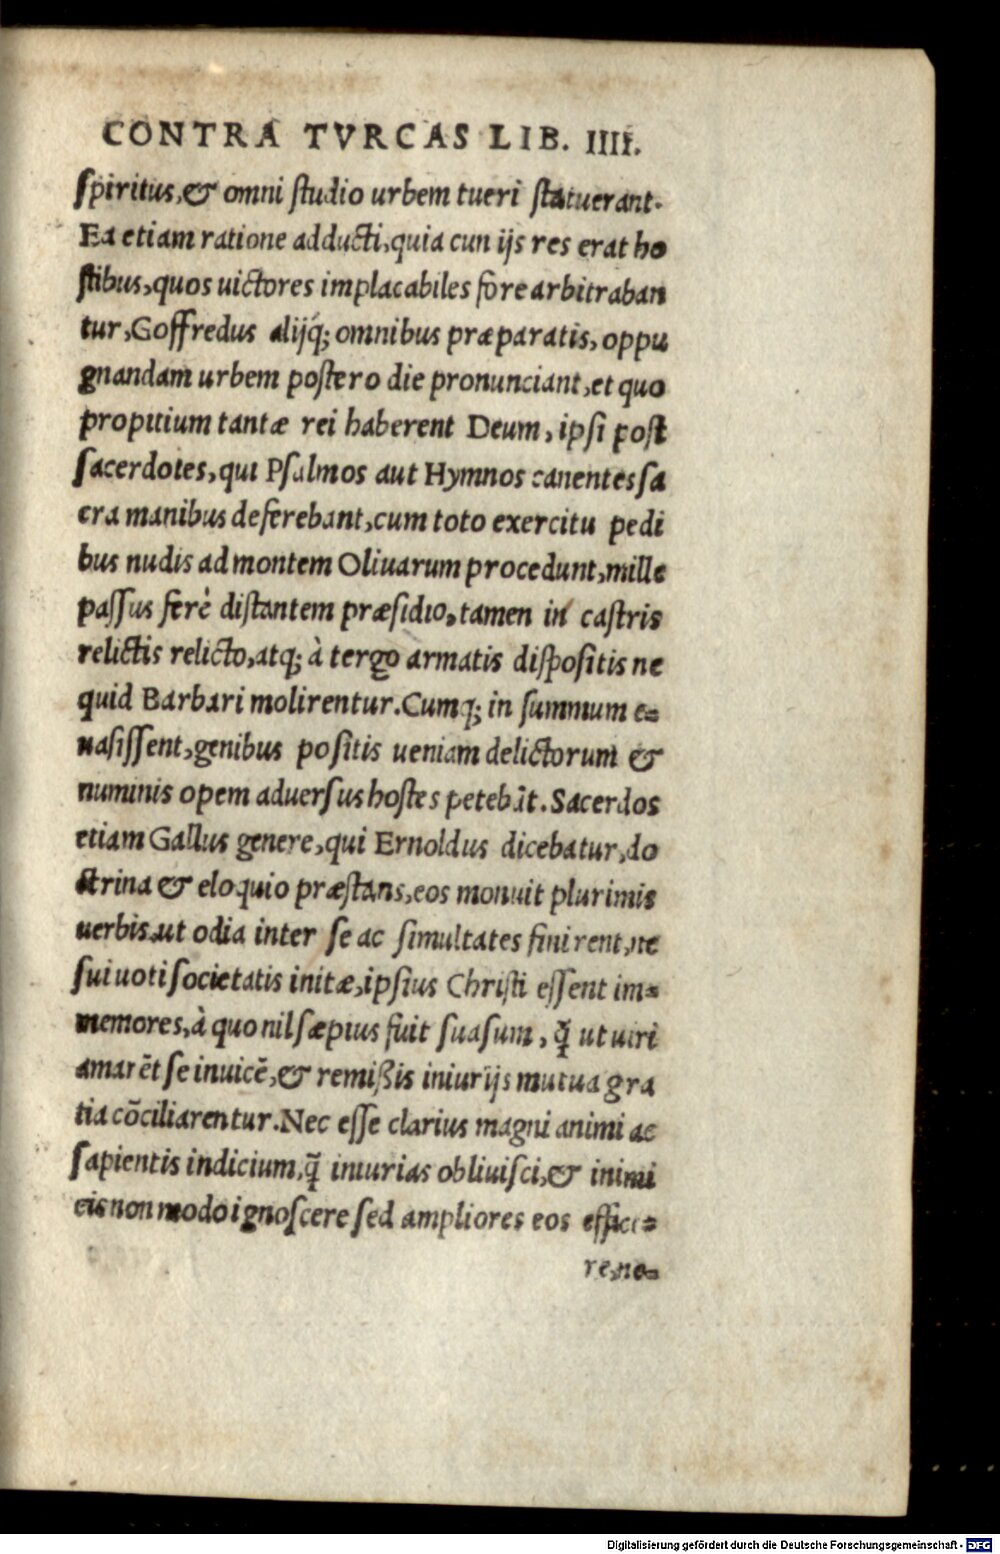 CONTRA TVRCAS LIB. IIII.
spiritus, & omni studio urbem tueri statuerant.
Ea etiam ratione adducti, quia cun ijs res erat ho
stibus, quos uictores implacabiles fore arbitraban
tur, Goffredus alijq́; omnibus præparatis, oppu
gnandam urbem postero die pronunciant, et quo
propitium tantæ rei haberent Deum, ipsi post
sacerdotes, qui Psalmos aut Hymnos canentes sa
cra manibus deferebant, cum toto exercitu pedi
bus nudis ad montem Oliuarum procedunt, mille
passus ferè distantem præsidio, tamen in castris
relictis relicto, atq; à tergo armatis dispositis ne
quid Barbari molirentur. Cumq; in summum e-
uasissent, genibus positis ueniam delictorum &
numinis opem aduersus hostes petebāt. Sacerdos
etiam Gallus genere, qui Ernoldus dicebatur, do
ctrina & eloquio præstans, eos monuit plurimis
uerbis, ut odia inter se ac simultates finirent, ne
sui uoti societatis initæ, ipsius Christi essent im-
memores, à quo nil sæpius fuit suasum, q̃ ut uiri
amarēt se inuicē, & remißis iniurijs mutua gra
tia cōciliarentur. Nec esse clarius magni animi ac
sapientis indicium, q̃ iniurias obliuisci, & inimi
cis non modo ignoscere sed ampliores eos effice-
re, no-
Digitalisierung gefördert durch die Deutsche Forschungsgemeinschaft - DFG